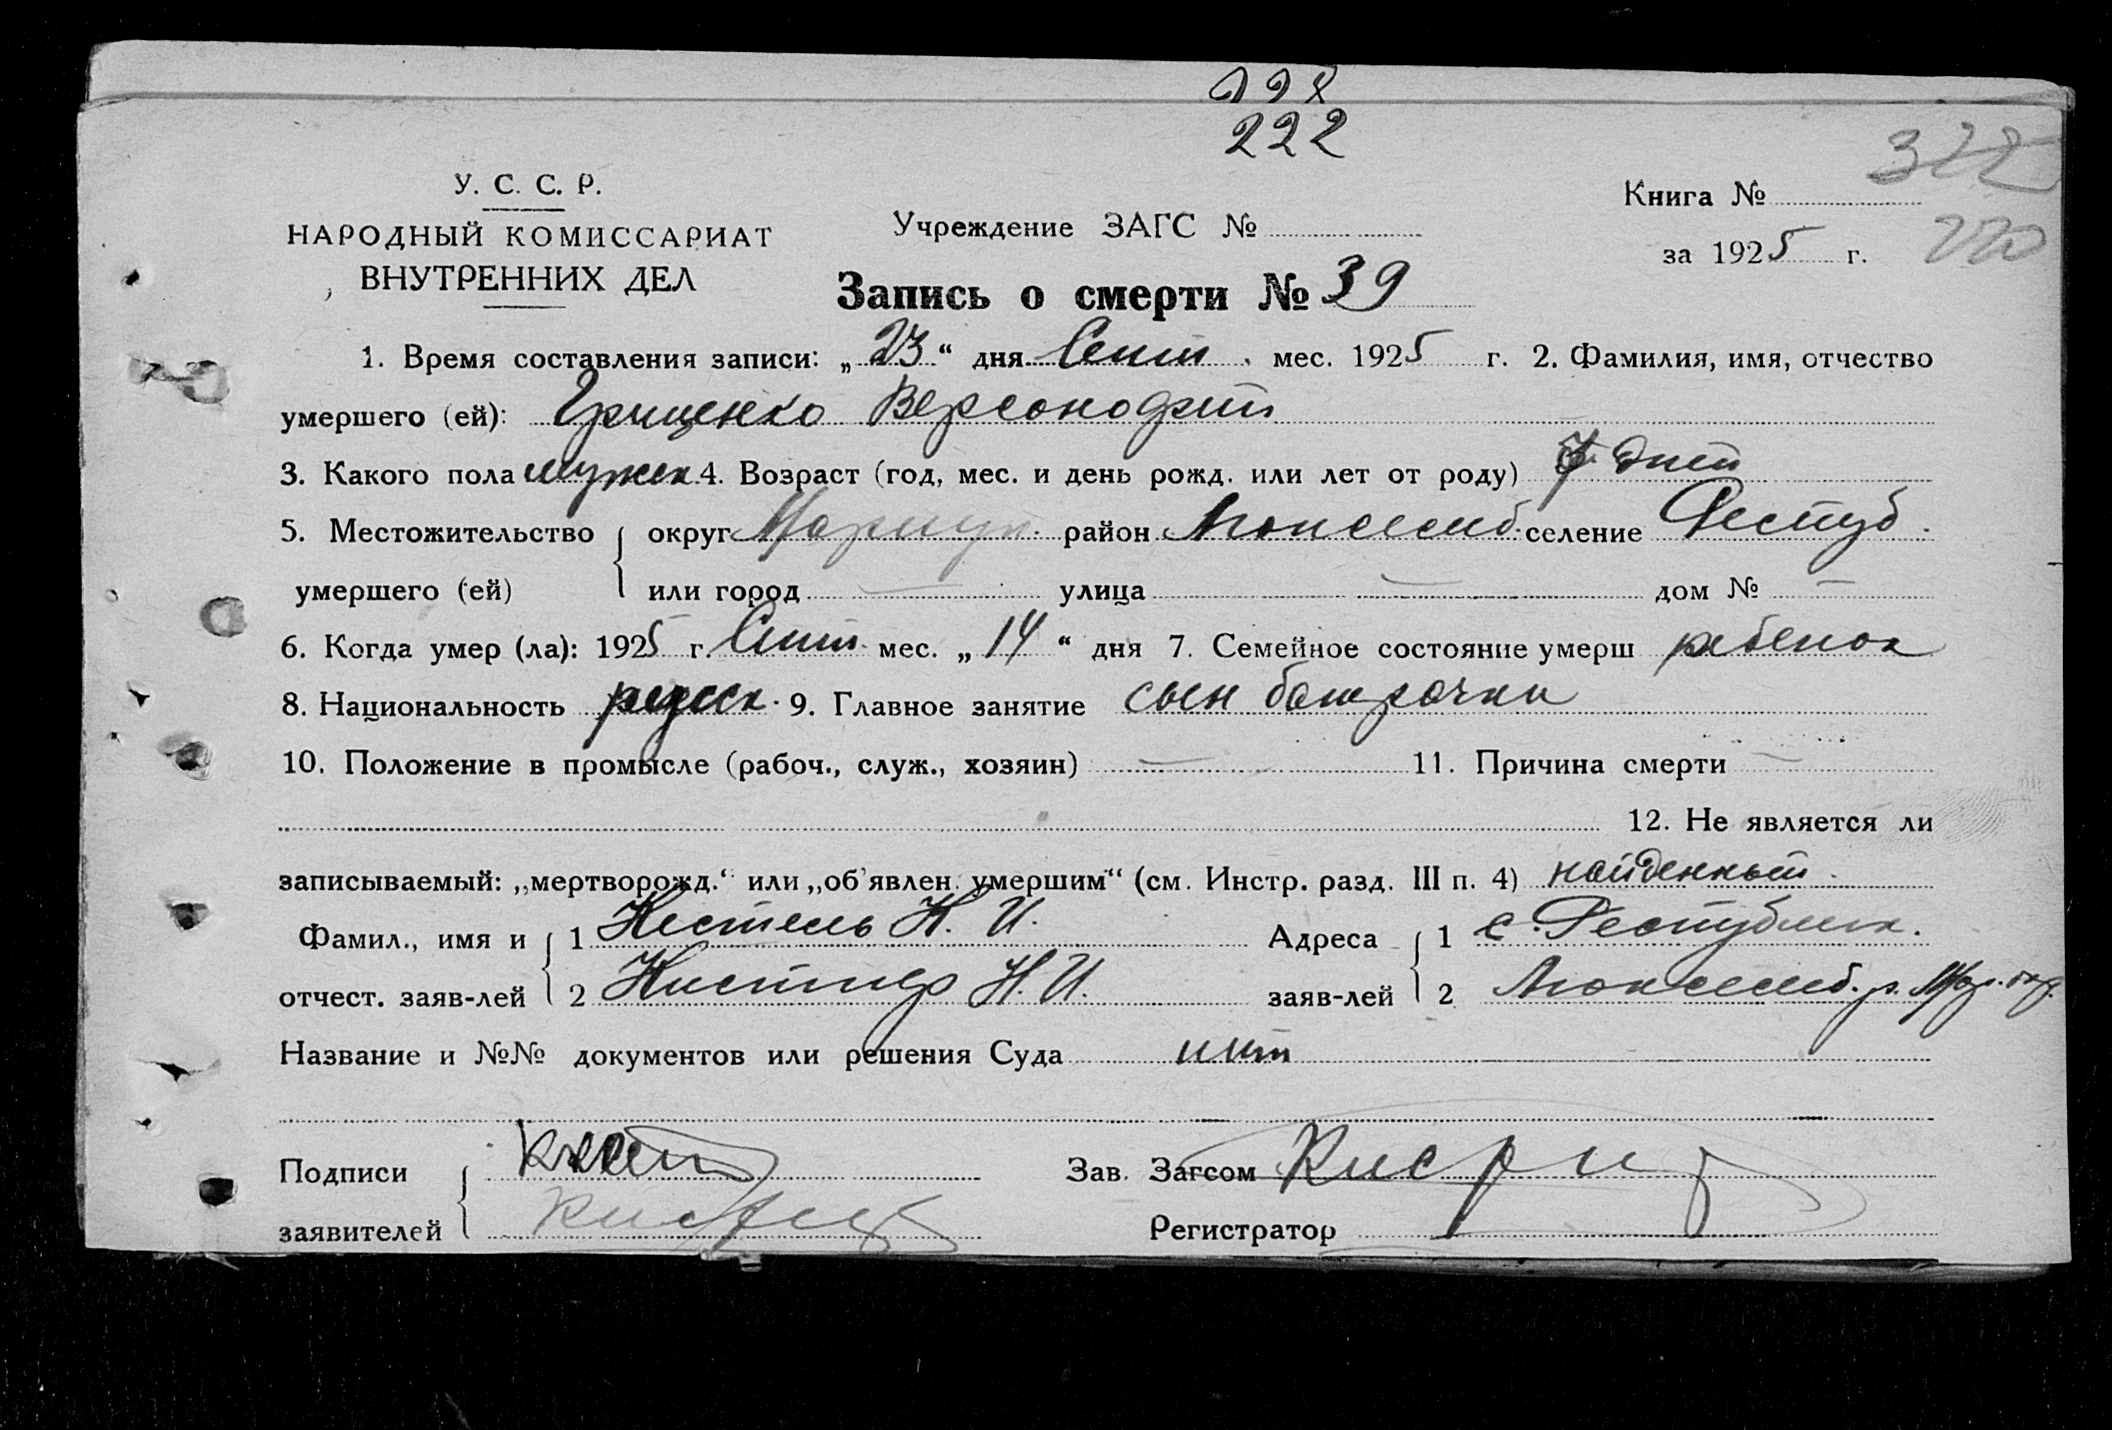 222
322
У. С. С. Р.
НАРОДНЫЙ КОМИССАРИАТ
ВНУТРЕННИХ ДЕЛ
Учреждение ЗАГС №
Книга №
за 1925 г.
220
Запись о смерти № 39
1. Время составления записи: „23“ дня Сент. мес. 1925 г. 2. Фамилия, имя, отчество
умершего (ей): Грищенко
3. Какого пола мужск 4. Возраст (год, мес. и день рожд. или лет от роду) 7 дней
5. Местожительство округ Мариуп. район Люксемб. селение Респуб.
умершего (ей) или город — улица — дом № —
6. Когда умер (ла): 1925 г. Сент. мес. „14“ дня 7. Семейное состояние умерш ребенок
8. Национальность русск. 9. Главное занятие сын батрачки
10. Положение в промысле (рабоч., служ., хозяин) — 11. Причина смерти —
12. Не является ли
записываемый: „мертворожд.“ или „об'явлен умершим“ (см. Инстр. разд. III п. 4) найденный.
Фамил., имя и 1 Нестель Н. И. Адреса 1 с. Республик.
отчест. заяв-лей 2 Н. И. заяв-лей 2 Люксемб. р. Мар. окр.
Название и №№ документов или решения Суда нет
Подписи Зав. Загсом
заявителей Регистратор